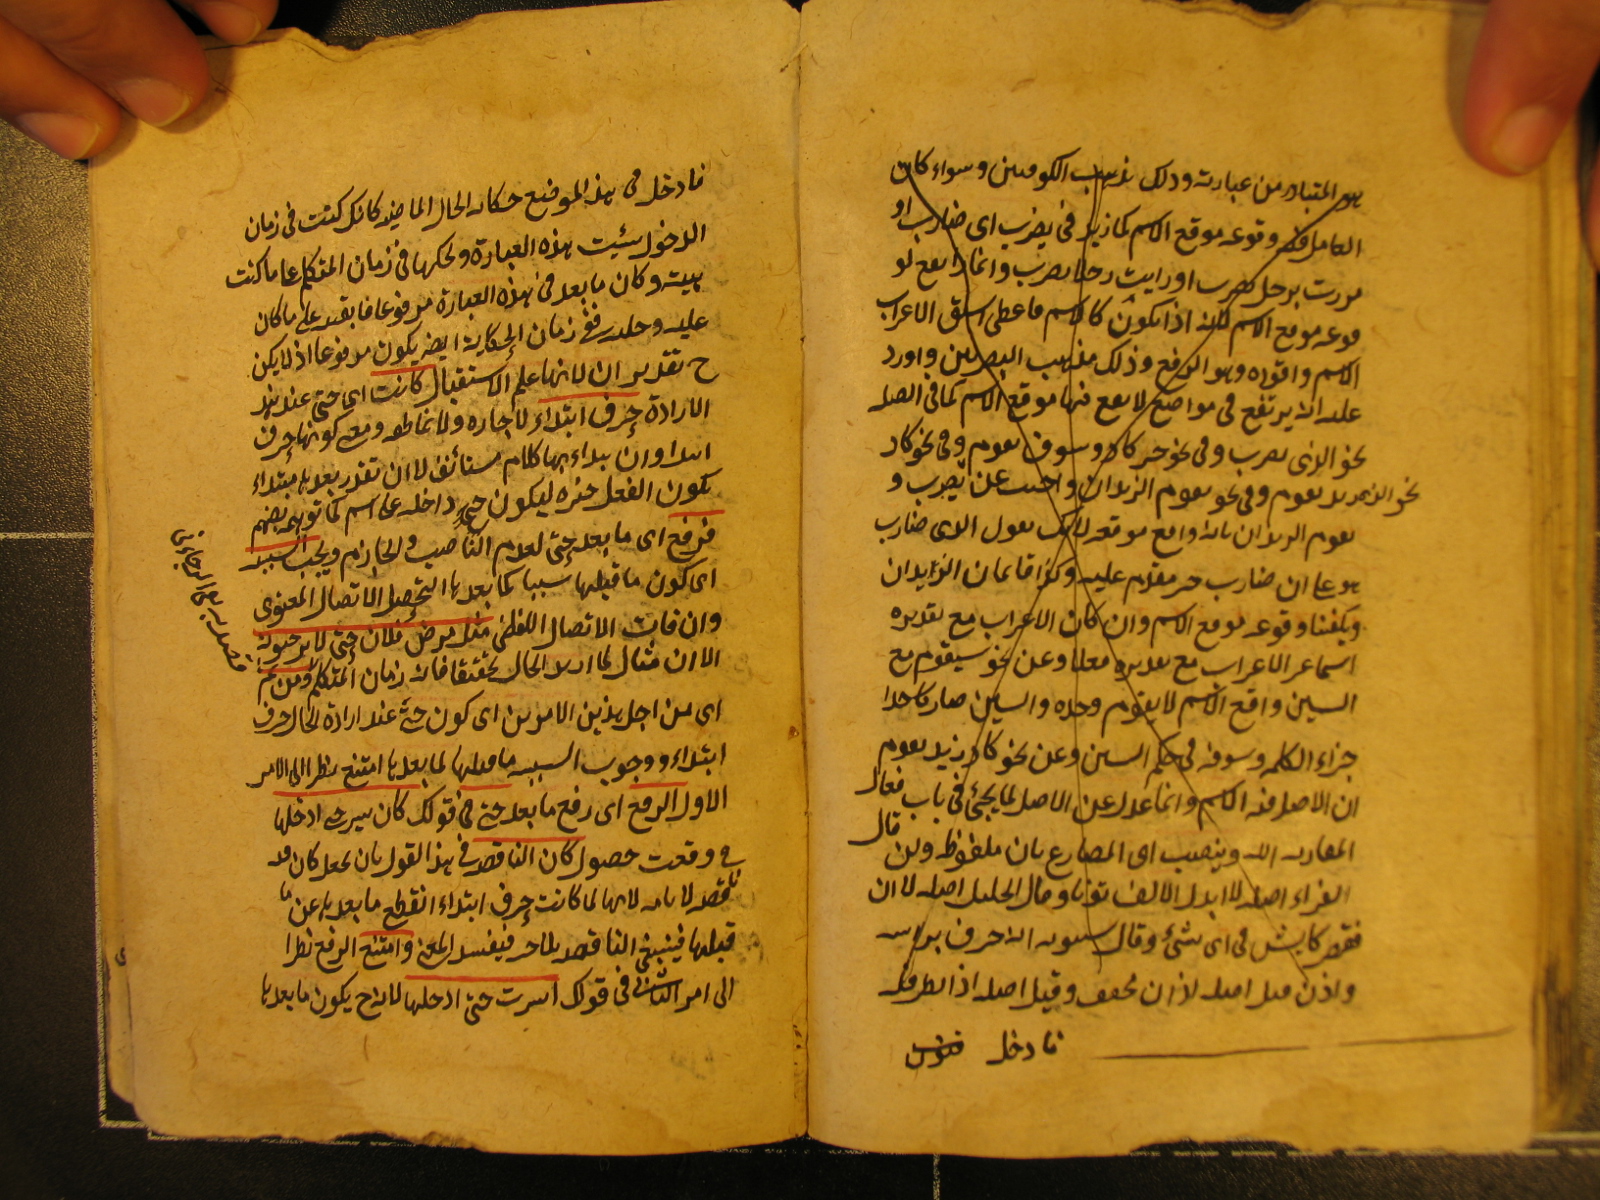 هو المتبادر من عبارته وذلك مذهب الكوفيين وسواء كان
العامل فيه وقوعه موقع الاسم كما زيد في يضرب اى ضارب او
مررت برجل يضرب او رايت رجلا يضرب وانما ارتفع لو
قوعه موقع الاسم لانه اذا يكون كالاسم فاعطى اسبق الاعراب
الاسم واقواه وهو الرفع وذلك مذهب البصريين واورد
عليه انه يرتفع في مواضع لا يقع فيها موقع الاسم كما في الصلة
نحو الذى يضرب وفي نحو سيقوم وسوف يقوم وفي نحو كاد
زيد يقوم وفي نحو يقوم الزيدان واجيب عن يضرب و
يقوم الزيدان بانه واقع موقعه لانك تقول الذى ضارب
هو على ان ضارب خبر مقدم عليه وكذا قائمان الزيدان
ويكفينا وقوعه موقع الاسم وان كان الاعراب مع تقديره
اسما غير الاعراب مع تقديره فعلا وعن نحو سيقوم مع
السين واقع الاسم لا يقوم وحده والسين صار كاحد
اجزاء الكلمة وسوف في حكم السين وعن نحو كاد زيد يقوم
ان الاصل فيه الاسم وانما عدل عن الاصل لما يجئ في باب افعال
المقاربة وينصب اى المضارع بان ملفوظة ولن قال
الفراء اصله لا ابدل الالف نونا وقال الخليل اصله لا ان
فقصر كايش في اى شئ وقال سيبويه انه حرف براسه
واذن قيل اصله اذ ان مخفف وقيل اصله اذا الظرفية
فادخل
فادخل في هذا الموضع حكاية الحال الماضية كانك كنت في زمان
الدخول هيئت هذه العبارة وتحكيها في زمان المتكلم على ما كنت
هيئته وكان ما بعد في هذه العبارة مرفوعا فابقيه على ما كان
عليه وحكيت في زمان الحكاية ايضا يكون مرفوعا اذ لا يمكن
ح تقدير ان لانها علم الاستقبال كانت اى حتى عند هذه
الارادة حرف ابتداء لا جارة ولا عاطفة ومعنى كونها حرف
ابتداء ان يبداء بها كلام مستانف لا ان تقدر بعدها مبتداء
يكون الفعل خبره ليكون حتى داخلة على اسم كما توهم بعضهم
فرفع اى ما بعد حتى لعدم الناصب والجازم ويجب السببية
اى كون ما قبلها سببا لما بعدها ليحصل الاتصال المعنوى
وان فات الاتصال اللفظى مثل مرض فلان حتى لا يرجونه
الان مثال لما اريد الحال تحقيقا فانه زمان المتكلم ومن ثم
اى من اجل هذين الامرين اى كون حتى عند ارادة الحال حرف
ابتداء ووجوب السببية ما قبلها لما بعدها امتنع نظرا الى الامر
الاول الرفع اى رفع ما بعد حتى في قولك كان سيرى حتى ادخلها
في وقت حصول كان الناقصة في هذا القول بان يجعل كان فيه
ناقصة لا تامة لانها لما كانت حرف ابتداء انقطع ما بعدها عن ما
قبلها فيبقى الناقصة بلا خبر فيفسد المعنى وامتنع الرفع نظرا
الى امر الثانى في قولك اسرت حتى ادخلها لانه ح يكون ما بعدها